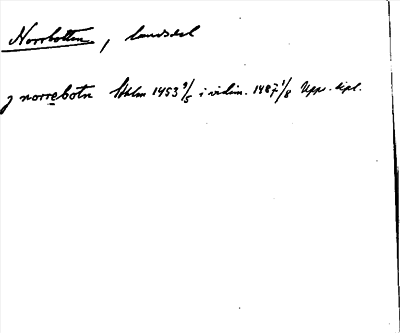 Norrbotten, landsdel
j norrebotn Sthlm 1453 9/5 i vidim. 1487 1/8 Upps. dipl.